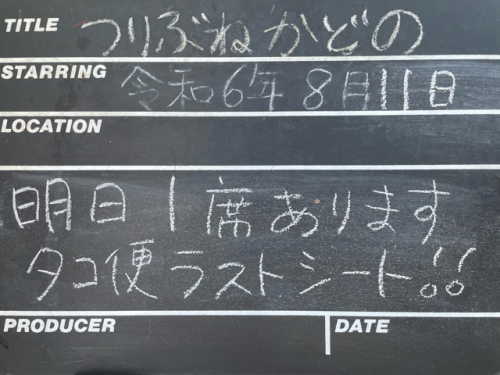 TITLE つりぶねかどの
STARRING 令和6年8月11日
LOCATION
明日1席あります
タコ便ラストシート!!
PRODUCER DATE